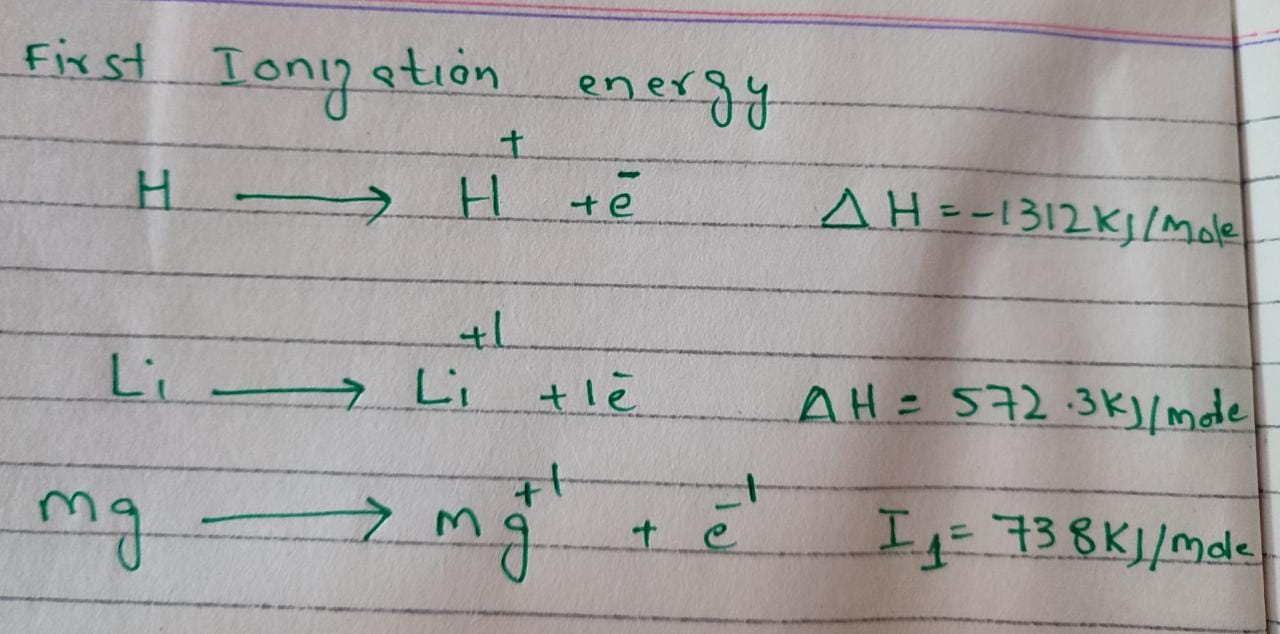 First Ionization energy
H ⟶ H⁺ + e⁻ ΔH = -1312 KJ/mole
Li ⟶ Li⁺¹ + 1e⁻ ΔH = 572.3KJ/mole
mg ⟶ mg⁺¹ + e⁻¹ I₁ = 738KJ/mole